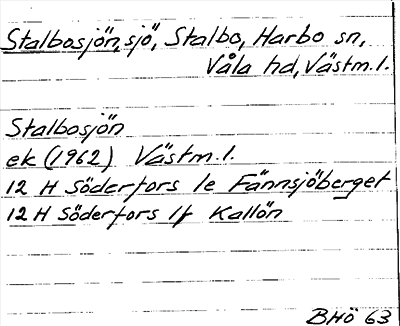 Stalbosjön, sjö, Stalbo, Harbo sn,
Våla hd, Västm.l.
Stalbosjön
ek (1962) Västm.l.
12 H Söderfors 1e Fännsjöberget
12 H Söderfors 1f Kallön
BHÖ 63